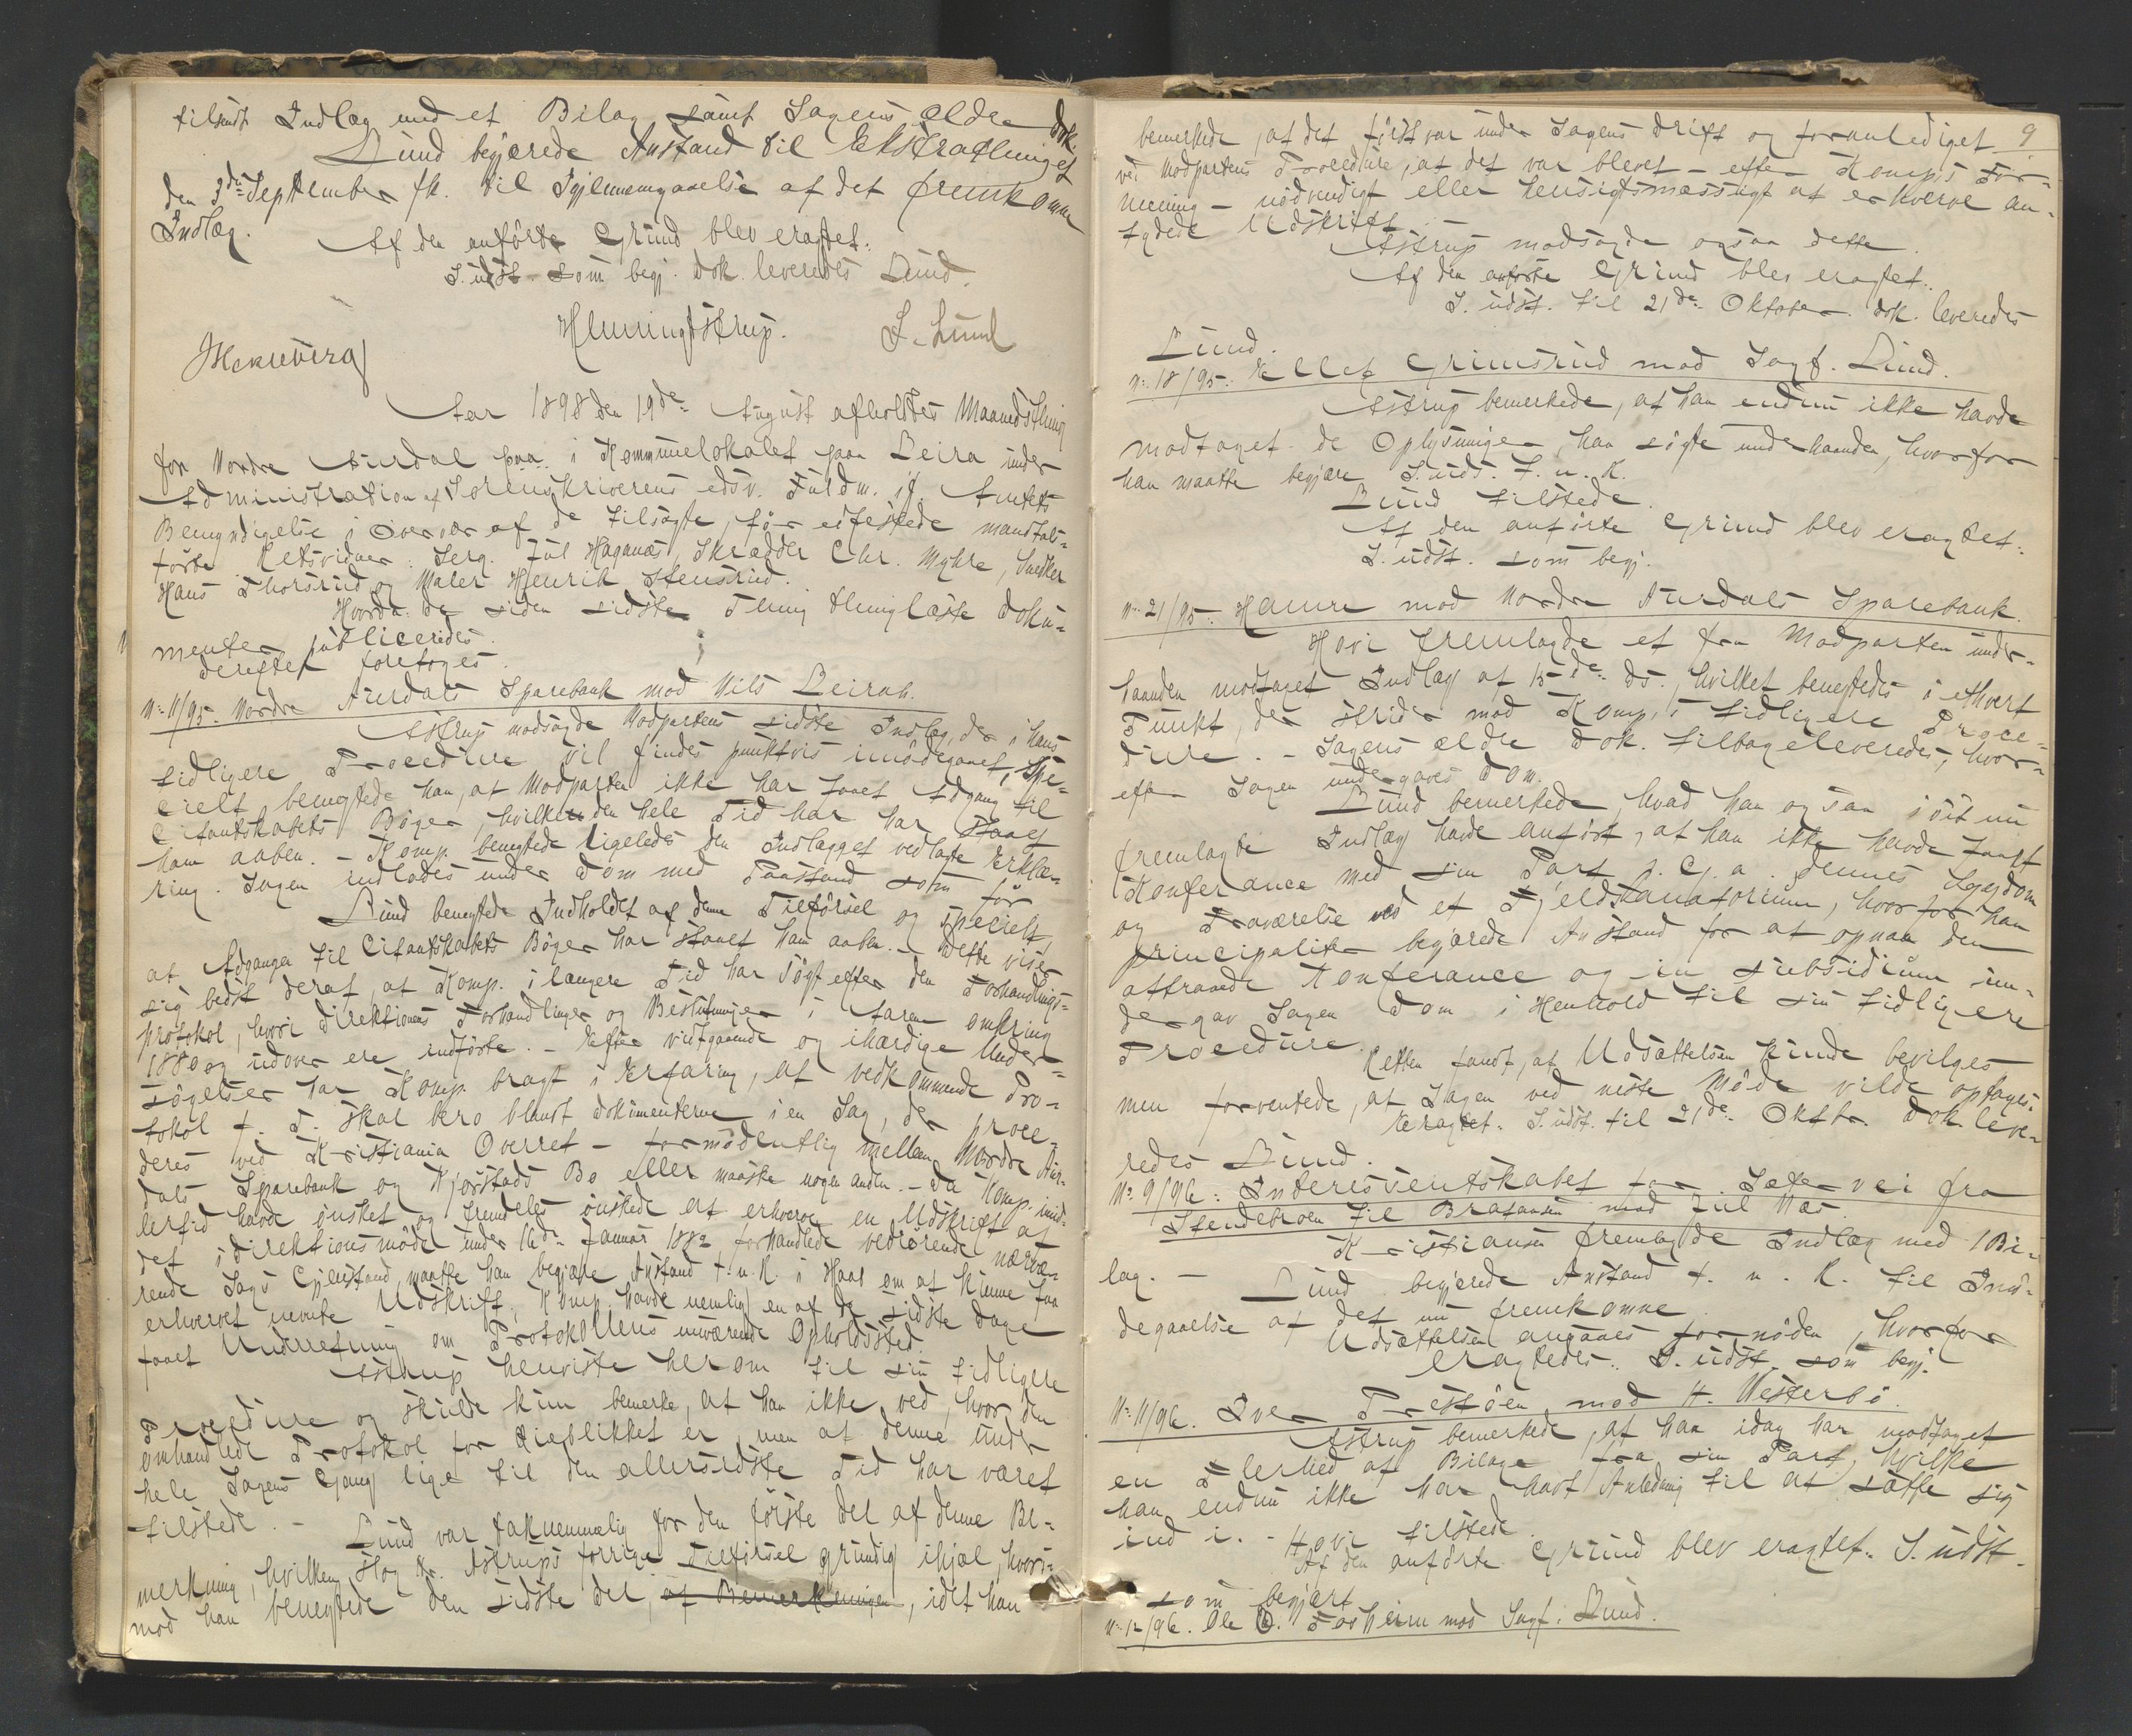 tilsendt Indlæg med et Bilag samt Sagens ældre Dok.
Lund begjærede Anstand til Ekstrathinget
den 3die September fk. til Igjennemgaaelse af det fremkomne
Indlæg.
Af den anførte Grund blev eragtet:
S. udst. som begj. Dok. leveredes Lund.
Henningstrup. S. Lund
Aar 1898 den 19de August afholdtes Maanedsthing
for Nordre Aurdal paa i Kommunelokalet paa Leira under
Administration af Sorenskriverens edsv. Fuldm. if. Amtets
Bemyndigelse i Overvær af de tilsagte, før edfæstede mandtals-
førte Retsvidner: Serg. Jul Haganæs, Skrædder Chr. Myhre, Snedker
Hans Thorsrud og Maler Henrik Stensrud.
Hvorda de siden sidste Thing thinglæste Doku-
menter publiceredes.
Derefter foretoges:
No 11/95. Nordre Aurdals Sparebank mod Nils Leirah.
Astrup modsagde Modpartens sidste Indlæg, der i hans
tidligere Procedure vil findes punktvis imødegaaet, spe-
cielt benegtede han, at Modparten ikke har faaet Adgang til
Citantskabets Bøger, hvilken den hele Tid har har staaet
ham aaben. - Komp. benegtede ligeledes den Indlægget vedlagte Erklæ-
ring. Sagen indlodes under Dom med Paastand som før
Lund benegtede Indholdet af denne Tilførsel og specielt,
at Adgangen til Citantskabets Bøger har staaet ham aaben. - Dette viser
sig bedst deraf, at Komp. i længere Tid har søgt efter den Forhandlings-
protokol, hvori Direktionens Forhandlinger og Beslutninger i Aarene omkring
1880 og udover ere indførte. - Efter vidtgaaende og ihærdige Under-
søgelser har Komp. bragt i Erfaring, at vedkommende Pro-
tokol f. T. skal bero blandt Dokumenterne i en Sag, der proce-
deres ved Kristiania Overret - formodentlig mellem Nordre Aur-
dals Sparebank og Kjørstads Bo eller maaske nogen anden. - Da Komp. imid-
lertid havde ønsket og fremdeles ønskede at erhverve en Udskrift af
det i Direktionsmøde under 16de Januar 1882 forhandlede vedrørende nærvæ-
rende Sags Gjenstand, maatte han begjære Anstand t. n. R. i Haab om at kunne faa
erhvervet nævnte Udskrift; Komp. havde nemlig en af de sidste Dage
faaet Underretning om Protokollens nuværende Opholdssted.
Astrup henviste herom til sin tidligere
Procedure og skulde kun bemerke, at han ikke ved, hvor den
omhandlede Protokol for Øieblikket er, men at denne under
hele Sagens Gang lige til den allersidste Tid har været
tilstede. -
Lund var taknemmelig for den første Del af denne Be-
merkning, hvilken slog Hr. Astrups forrige Tilførsel grundig ihjel, hvori-
mod han benegtede den sidste Del, af Bemerkningen, idet han
9
bemerkede, at det først var under Sagens Drift og foranlediget
ved Modpartens Procedure, at det var blevet - efter Komp.s For-
mening - nødvendigt eller hensigtsmæssigt at erhverve an-
tydede Udskrift. -
Astrup modsagde ogsaa dette.
Af den anførte Grund blev eragtet:
S. udst. til 21de Oktober. Dok. leveredes
Lund.
No 18/95. Ellef Grimsrud mod Sagf. Lund.
Astrup bemerkede, at han endnu ikke havde
modtaget de Oplysninger han søgte underhaanden, hvorfor
han maatte begjære S. uds. t. n. R.
Lund tilstede.
Af den anførte Grund blev eragtet:
S. udst. som begj.
No 21/95. Hamre mod Nordre Aurdals Sparebank.
Hovi fremlagde et fra Modparten under-
haanden modtaget Indlæg af 15de ds., hvilket benegtedes i ethvert
Punkt, der strider mod Komp.s tidligere Proce-
dure. - Sagens ældre Dok. tilbageleveredes, hvor-
efter Sagen undergaves Dom.
Lund bemerkede, hvad han ogsaa i sit nu
fremlagde Indlæg havde anført, at han ikke havde faaet
Konferance med sin Part p. G. a. dennes Sygdom
og Fraværelse ved et Fjeldsanatorium, hvorfor han
principaliter begjærede Anstand for at opnaa den
attraaede Konferance og in subsidium un-
dergav Sagen Dom i Henhold til sin tidligere
Procedure.
Retten fandt, at Udsættelsen kunde bevilges
men forventede, at Sagen ved næste Møde vilde optages.
Eragtet: S. udst. til 21de Oktbr. Dok. leve-
redes Lund.
No 9/96: Interessentskabet for Sætervei fra
Stendebroen til Brataasen mod Jul Næs.
Kristiansen fremlagde Indlæg med 1 Bi-
lag. -
Lund begjærede Anstand t. n. R. til Imø-
degaaelse af det nu fremkomne.
Udsættelsen ansaaes fornøden, hvorfor
eragtedes: S. udst. som begj.
No 11/96. Iver Prestøen mod H. Vesterbø.
Astrup bemerkede, at han idag har modtaget
en Flerhed af Bilage fra sin Part, hvilke
han endnu ikke har havt Anledning til at sætte sig
ind i. - Hovi tilstede.
Af den anførte Grund blev eragtet: S. udst.
som begjært.
No 12/96. Ole O. Fosheim mod Sagf. Lund.